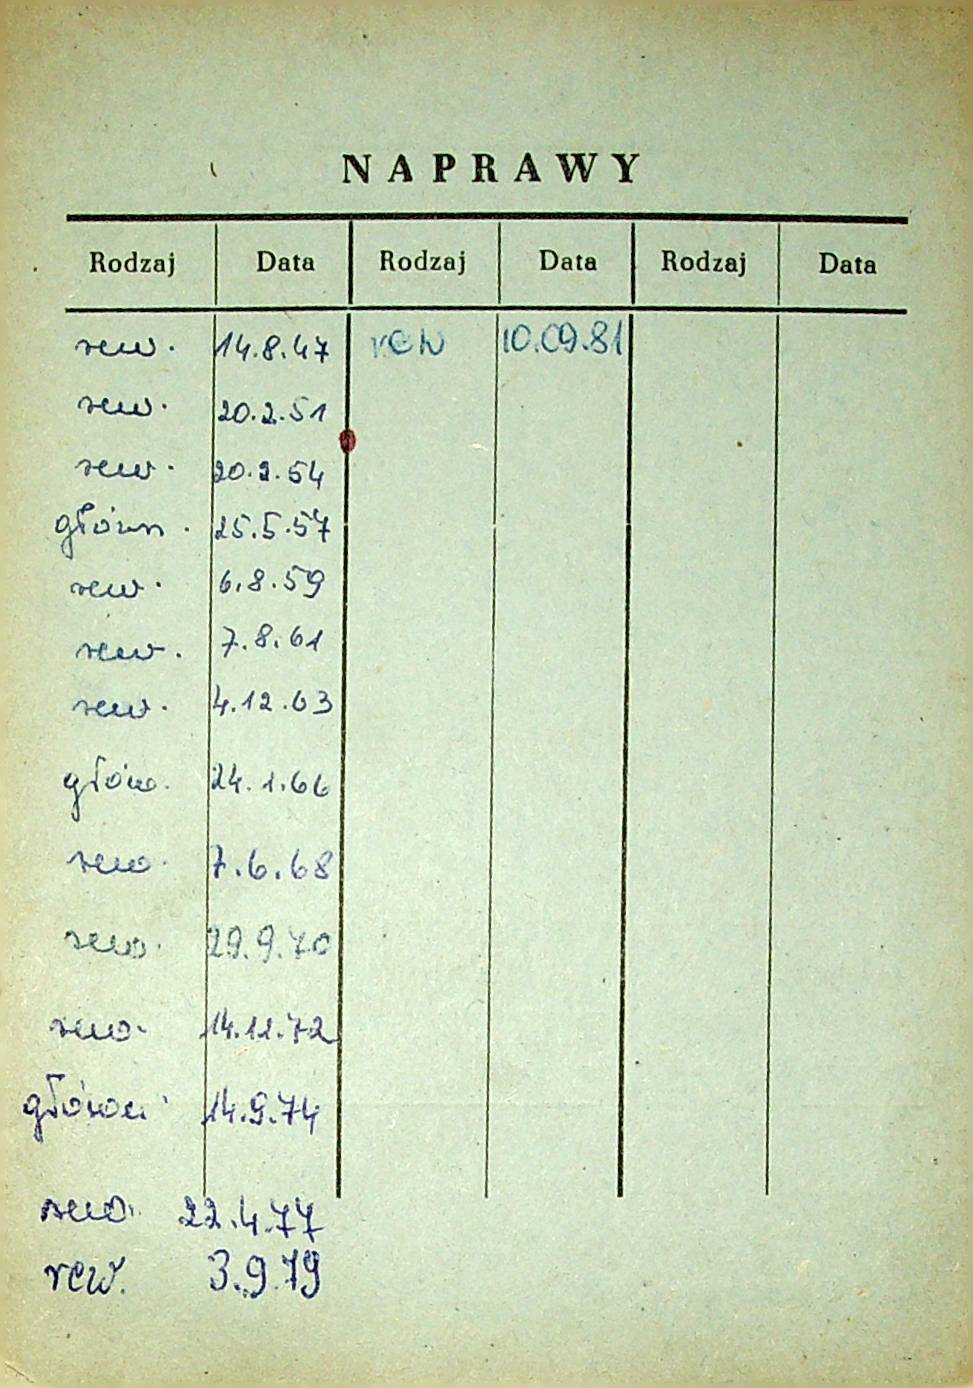 NAPRAWY
Rodzaj Data Rodzaj Data Rodzaj Data
rew. 14.8.47 rew 10.09.81
rew. 20.2.51
rew. 20.2.54
główn. 25.5.57
rew. 6.8.59
rew. 7.8.61
rew. 4.12.63
główn. 24.1.66
rew. 7.6.68
rew. 29.9.70
rew. 14.12.72
główn. 14.9.74
rew. 22.4.77
rew. 3.9.79